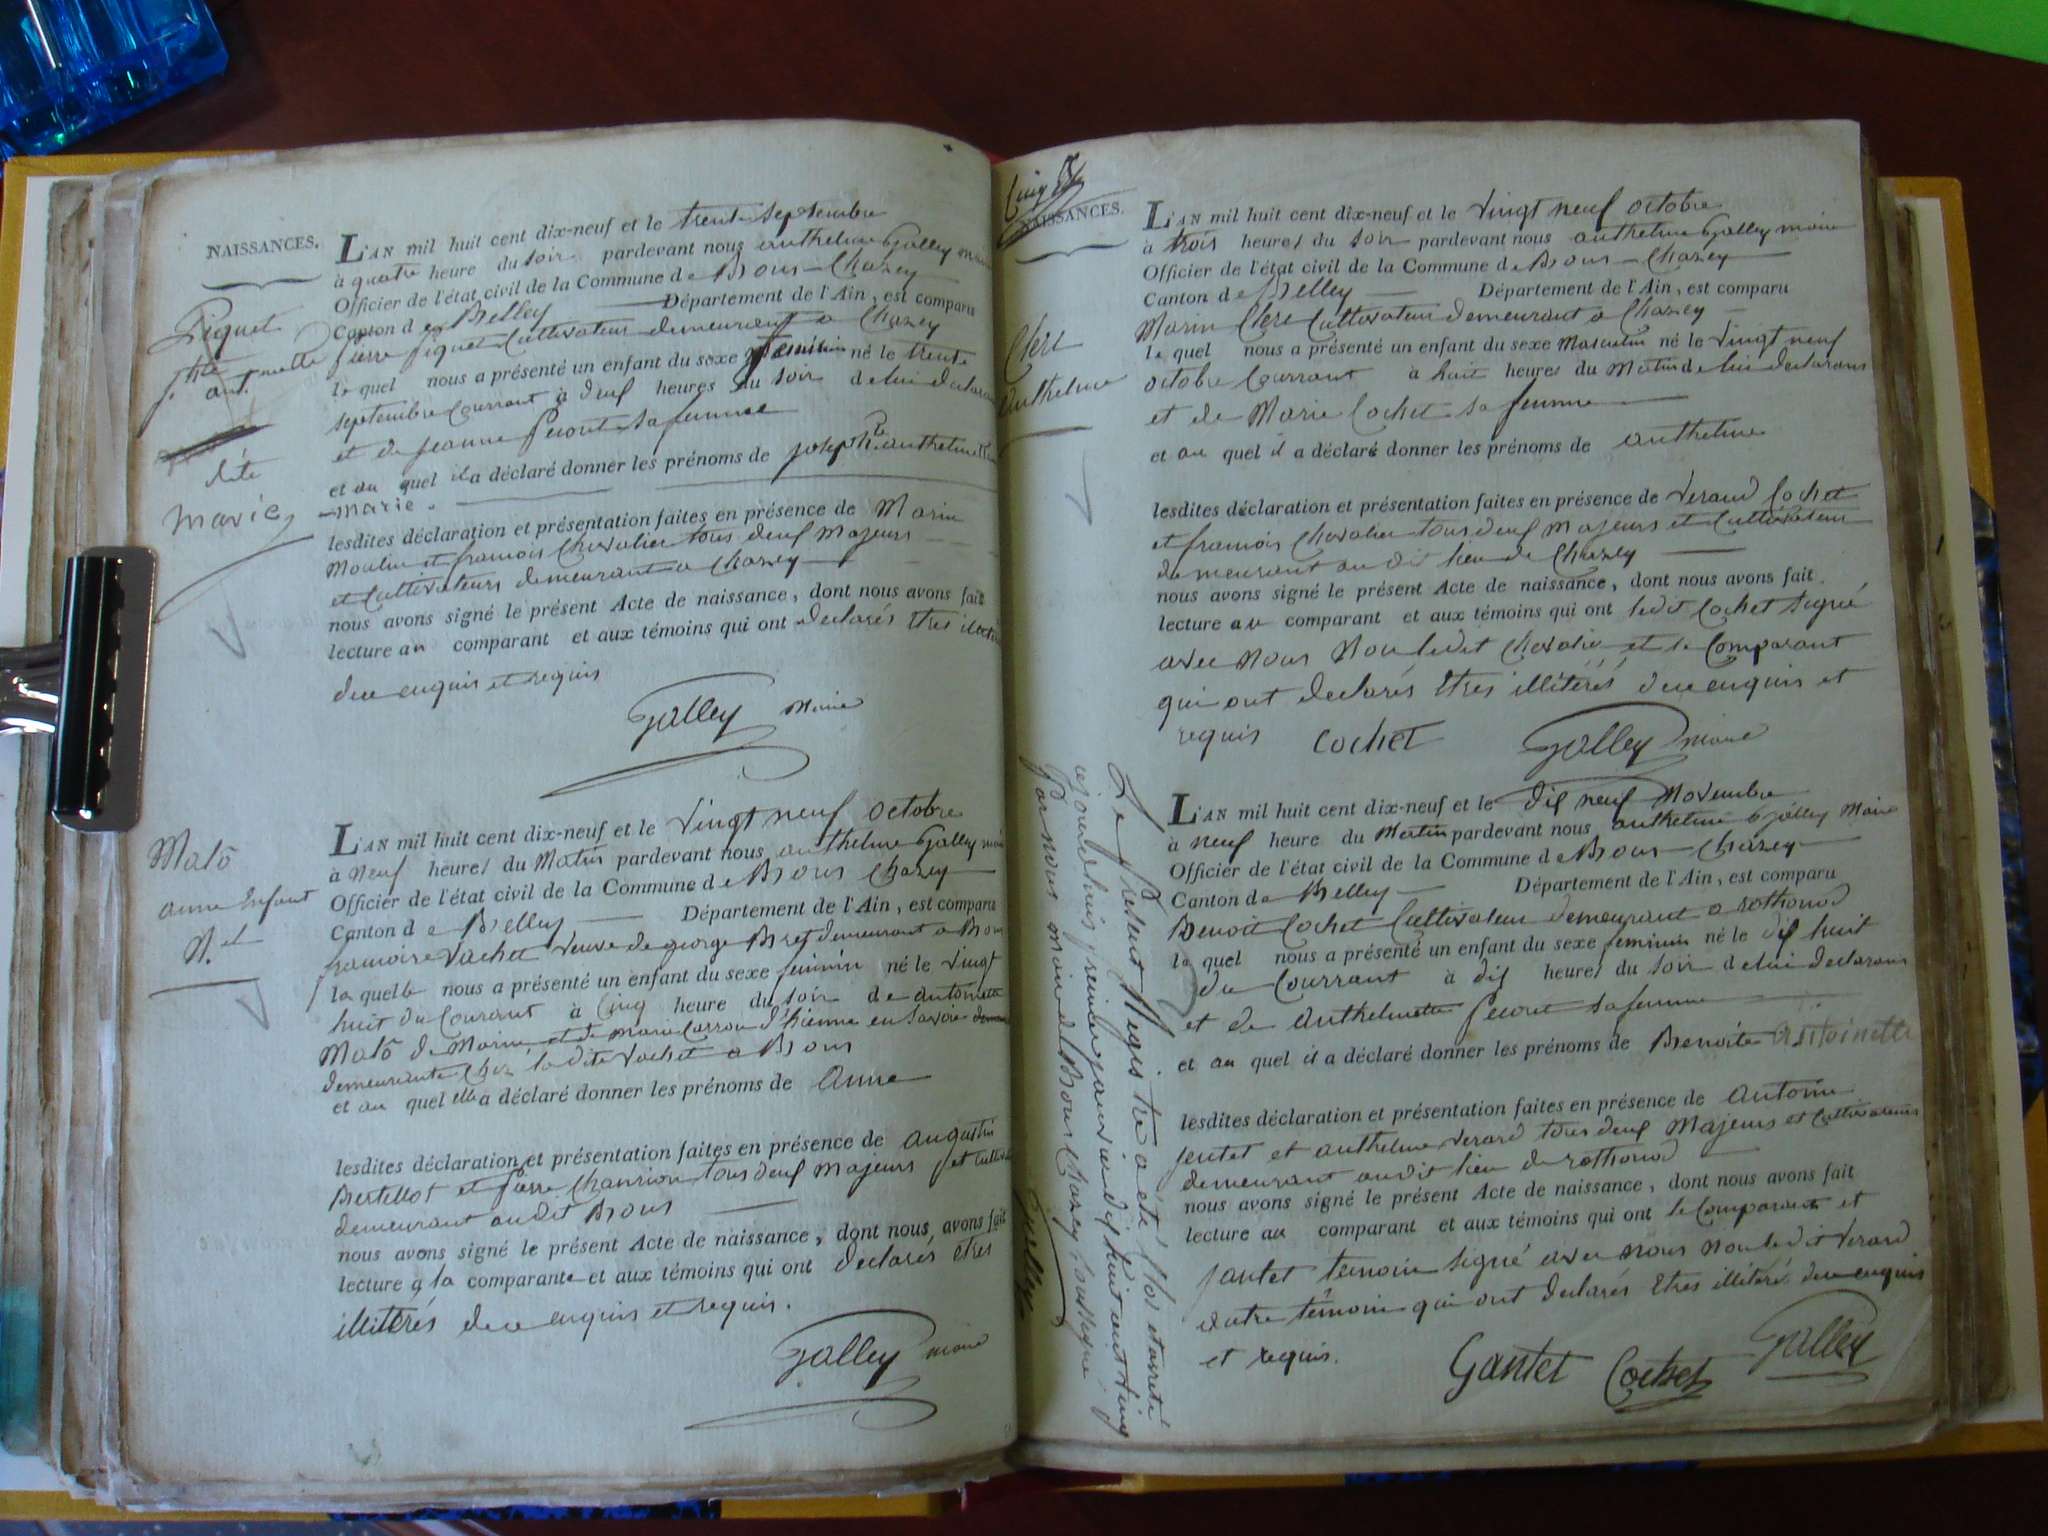 NAISSANCES.
Piguet
jhte ant.mette
dite
marie
L'AN mil huit cent dix-neuf et le trente septembre
à quatre heure du soir pardevant nous anthelme Galley maire
Officier de l'état civil de la Commune de Brous-Chazey
Canton de Belley Département de l'Ain, est comparu
pierre piguet Cultivateur demeurant a Chazey
le quel nous a présenté un enfant du sexe feminin né le trente
septembre Courrant à deuf heures du soir de lui declarant
et de jeanne perout sa femme
et au quel il a déclaré donner les prénoms de josephte anthelmette
marie.
lesdites déclaration et présentation faites en présence de Marin
Moulin et framois Chevalier tous deuf Majeurs
et Cultivateurs demeurant a Chazey
nous avons signé le présent Acte de naissance, dont nous avons fait
lecture au comparant et aux témoins qui ont declarés etres illiterés
dece enquis et requis
Galley maire
Malô
anne Enfant
N.el
L'AN mil huit cent dix-neuf et le Vingt neuf octobre
à Neuf heures du Matin pardevant nous anthelme Galley maire
Officier de l'état civil de la Commune de Brous Chazey
Canton de Belley Département de l'Ain, est comparu
framoise Vachet Veuve de george Bret demeurant a Brous
la quelle nous a présenté un enfant du sexe feminin né le Vingt
huit du Courant à Cinq heure du soir de antoinette
Malô de Marin et de marie Carron d'hienne en savoie
demeurante Chez la dite Vachet a Brous
et au quel elle a déclaré donner les prénoms de Anne
lesdites déclaration et présentation faites en présence de augustin
Bertillot et pierre Chanrion tous deuf majeurs et Cultiv
demeurant audit Brous
nous avons signé le présent Acte de naissance, dont nous avons fait
lecture a la comparante et aux témoins qui ont declarés etres
illitérés dece enquis et requis.
Galley maire
NAISSANCES.
Clerc
anthelme
L'AN mil huit cent dix-neuf et le Vingt neuf octobre
à trois heures du soir pardevant nous anthelme Galley maire
Officier de l'état civil de la Commune de Brous-Chazey
Canton de Belley Département de l'Ain, est comparu
Marin Clerc Cultivateur demeurant a Chazey
le quel nous a présenté un enfant du sexe Masculin né le Vingt neuf
octobre Courrant à huit heures du Matin de lui declarans
et de Marie Cochet sa femme
et au quel il a déclaré donner les prénoms de anthelme
lesdites déclaration et présentation faites en présence de Veraud Cochet
et framois Chevalier tous deuf majeurs et Cultivateur
demeurant au dit lieu de Chazey
nous avons signé le présent Acte de naissance, dont nous avons fait
lecture au comparant et aux témoins qui ont ledit Cochet signé
avec nous Non ledit Chevalier et le Comparant
qui ont declarés Etres illitérés dece enquis et
requis Cochet Galley maire
L'AN mil huit cent dix-neuf et le dif neuf Novembre
à neuf heure du Matin pardevant nous anthelme Galley Maire
Officier de l'état civil de la Commune de Brous-Chazey
Canton de Belley Département de l'Ain, est comparu
Benoit Cochet Cultivateur demeurant a rothonod
le quel nous a présenté un enfant du sexe feminin né le dif huit
du Courrant à dif heures du soir de lui declarans
et de anthelmette perout sa femme
et au quel il a déclaré donner les prénoms de Benoite antoinette
lesdites déclaration et présentation faites en présence de Antoine
jentet et anthelme Verard tous deuf Majeurs et Cultivateurs
demeurant audit lieu de rothonod
nous avons signé le présent Acte de naissance, dont nous avons fait
lecture au comparant et aux témoins qui ont le Comparant et
jantet temoin signé avec nous Non ledit Verard
autre témoin qui ont declarés Etres illitérés dece enquis
et requis.
Gantet Cochet Galley
Le present Registre a été Clos et arreté
cejourdhuis premier janvier dif huit cent vingt
par nous maire de Brous Chazey soussigné
Galley